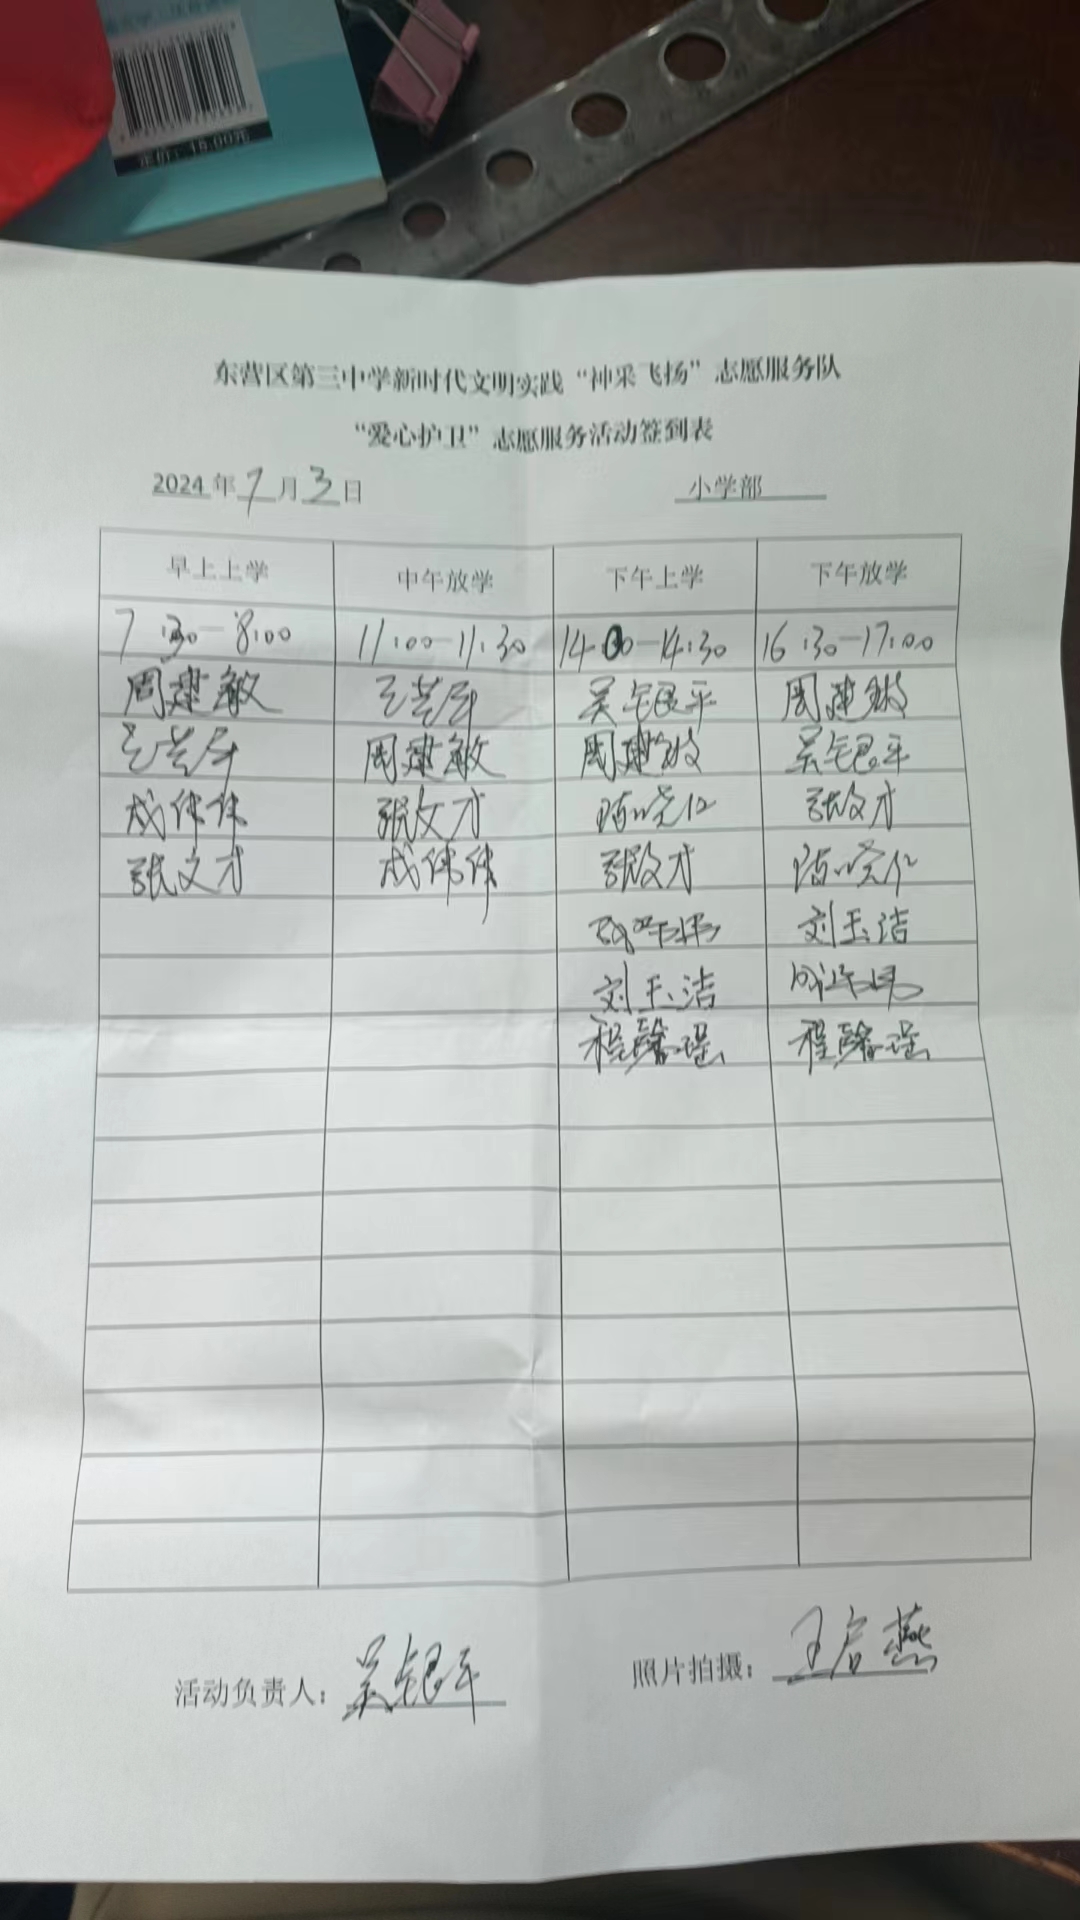 定价：15.00元
东营区第三中学新时代文明实践“神采飞扬”志愿服务队
“爱心护卫”志愿服务活动签到表
2024 年 7 月 3 日 小学部
早上上学 中午放学 下午上学 下午放学
7:30-8:00 11:00-11:30 14:00-14:30 16:30-17:00
周建敏 吴银平 周建敏
周建敏 周建敏 吴银平
成伟伟 张文才 陈晓仁 张文才
张文才 成伟伟 张文才 陈晓仁
刘玉洁
刘玉洁
程馨瑶 程馨瑶
活动负责人：吴银平 照片拍摄：王启燕